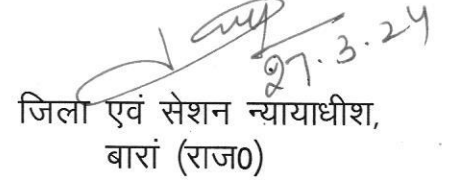 27.3.24
जिला एवं सेशन न्यायाधीश,
बारां (राज0)